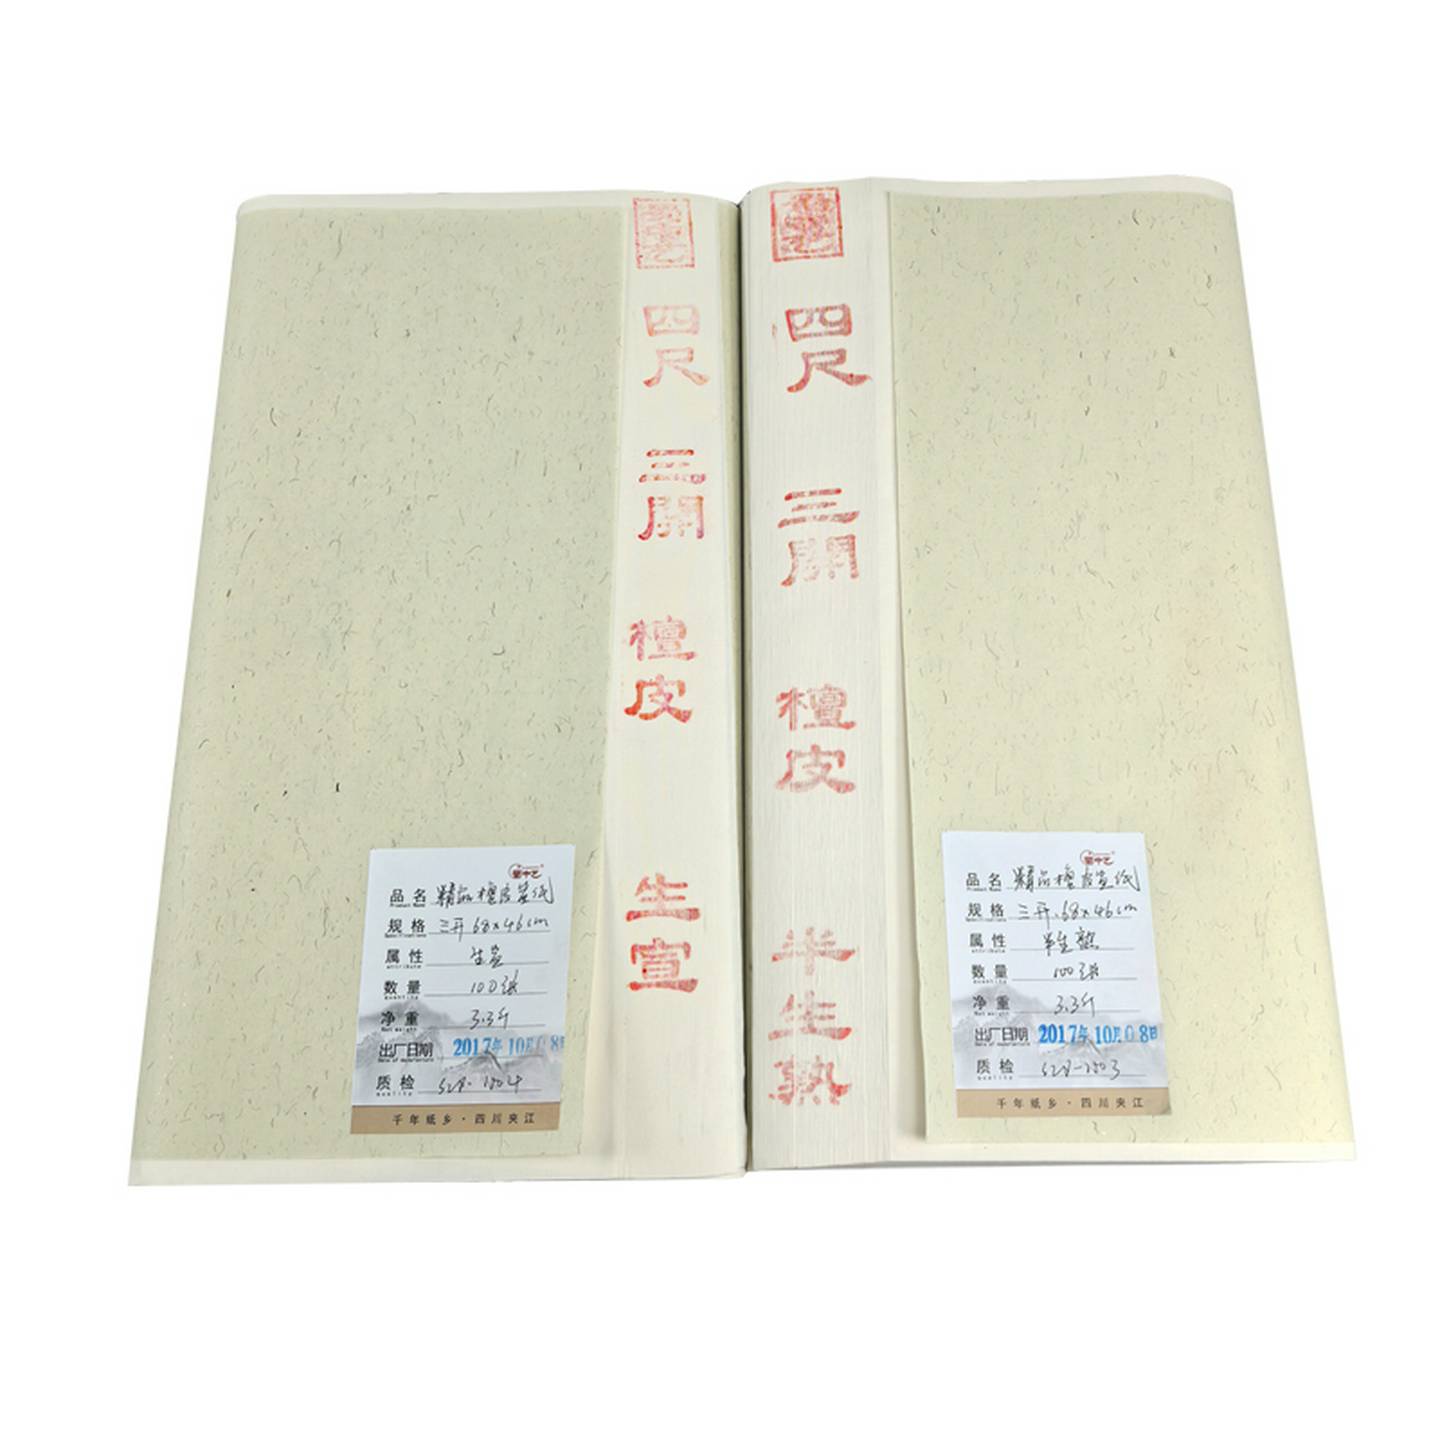 四尺
三開
檀皮
生宣
蜀中艺
品名 精品檀皮宣纸
Product Name
规格 三开 68x46cm
Specifications
属性 生宣
attribute
数量 100张
quantity
净重 3.3斤
Net weight
出厂日期 2017年10月08日
Date of manufacture
质检 528-1004
quality
千年纸乡·四川夹江
四尺
三開
檀皮
半生熟
蜀中艺
品名 精品檀皮宣纸
Product Name
规格 三开.68x46cm
Specifications
属性 半生熟
attribute
数量 100张
quantity
净重 3.3斤
Net weight
出厂日期 2017年10月08日
质检 528-1003
quality
千年纸乡·四川夹江